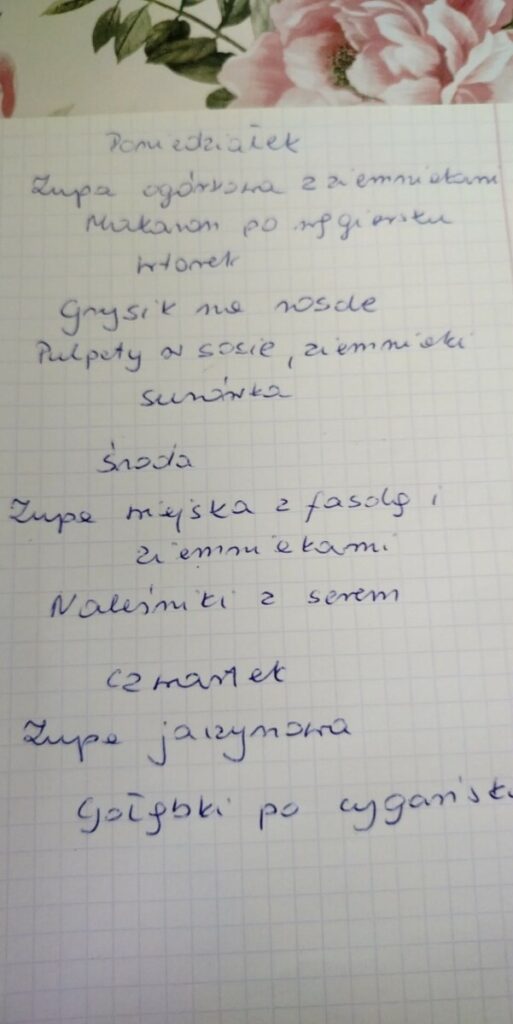 Poniedziałek
Zupa ogórkowa z ziemniakami
Makaron po węgiersku
wtorek
Grysik na rosole
Pulpety w sosie, ziemniaki
surówka
środa
Zupa wiejska z fasolą i
ziemniakami
Naleśniki z serem
czwartek
Zupa jarzynowa
Gołąbki po cygańsku